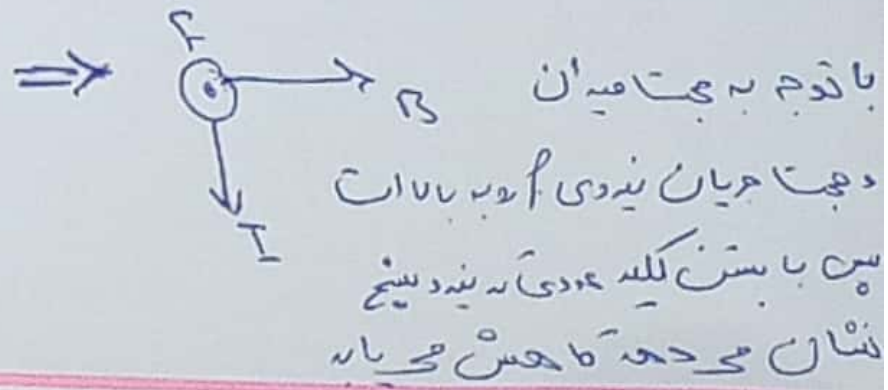 ⇒ F B I
با توجه به جهت میدان
و جهت جریان نیروی F رو به بالا است
پس با بستن کلید عددی که نیروسنج
نشان می دهد کاهش می یابد